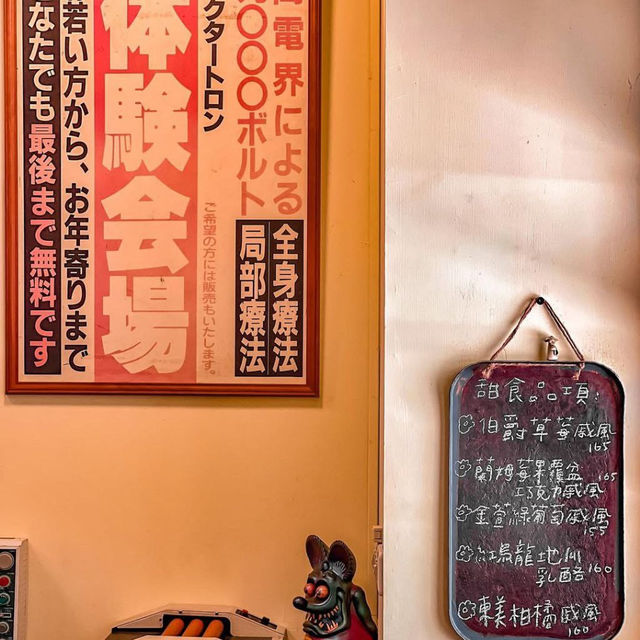 電界による
〇〇〇ボルト
全身療法
局部療法
クタートロン
ご希望の方には販売もいたします。
体験会場
若い方から、お年寄りまで
なたでも最後まで無料です
甜食品項:
伯爵草莓戚風
165
蘭姆莓果覆盆
巧克力戚風
165
金萱綠葡萄戚風
155
紅烏龍地瓜
乳酪 160
東美柑橘戚風
160